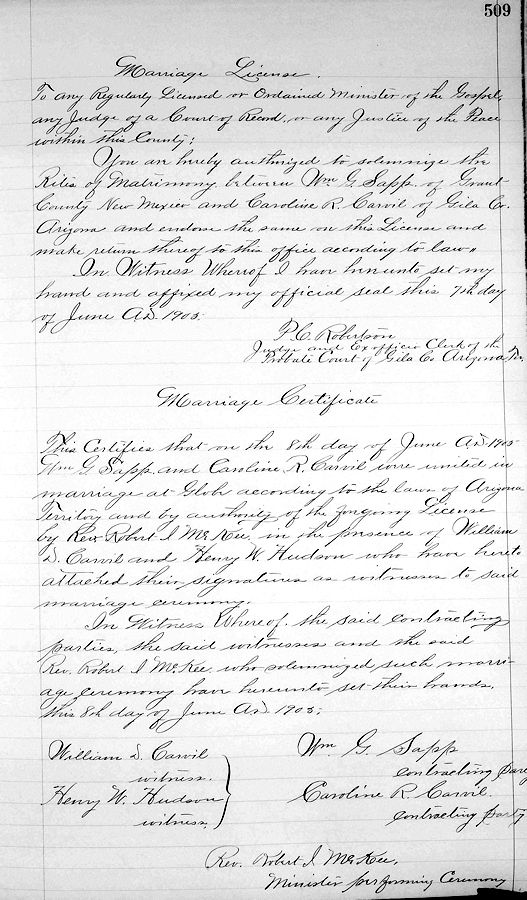 509
Marriage License.
To any Regularly Licensed or Ordained Minister of the Gospel,
any Judge of a Court of Record, or any Justice of the Peace
within this County:
You are hereby authorized to solemnize the
Rites of Matrimony between Wm G. Sapp of Grant
County New Mexico and Caroline R. Carvil of Gila Co.
Arizona and endorse the same on this License and
make return thereof to this office according to law.
In Witness Whereof I have hereunto set my
hand and affixed my official seal this 7th day
of June A.D. 1905.
P.C. Robertson
Judge and Ex officio Clerk of the
Probate Court of Gila Co Arizona Ter.
Marriage Certificate
This Certifies that on the 8th day of June A.D. 1905
Wm G. Sapp and Caroline R. Carvil were united in
marriage at Globe according to the laws of Arizona
Territory and by authority of the forgoing License
by Rev. Robert I McKee, in the presence of William
D. Carvil and Henry W. Hudson who have hereto
attached their signatures as witnesses to said
marriage ceremony.
In Witness Whereof, the said contracting
parties, the said witnesses and the said
Rev. Robert I McKee who solemnized such marri-
age ceremony have hereunto set their hands,
this 8th day of June A.D. 1905.
William D. Carvil
witness.
Henry W. Hudson
witness.
Wm G. Sapp
contracting party
Caroline R. Carvil.
contracting party
Rev. Robert I. McKee,
Minister performing Ceremony